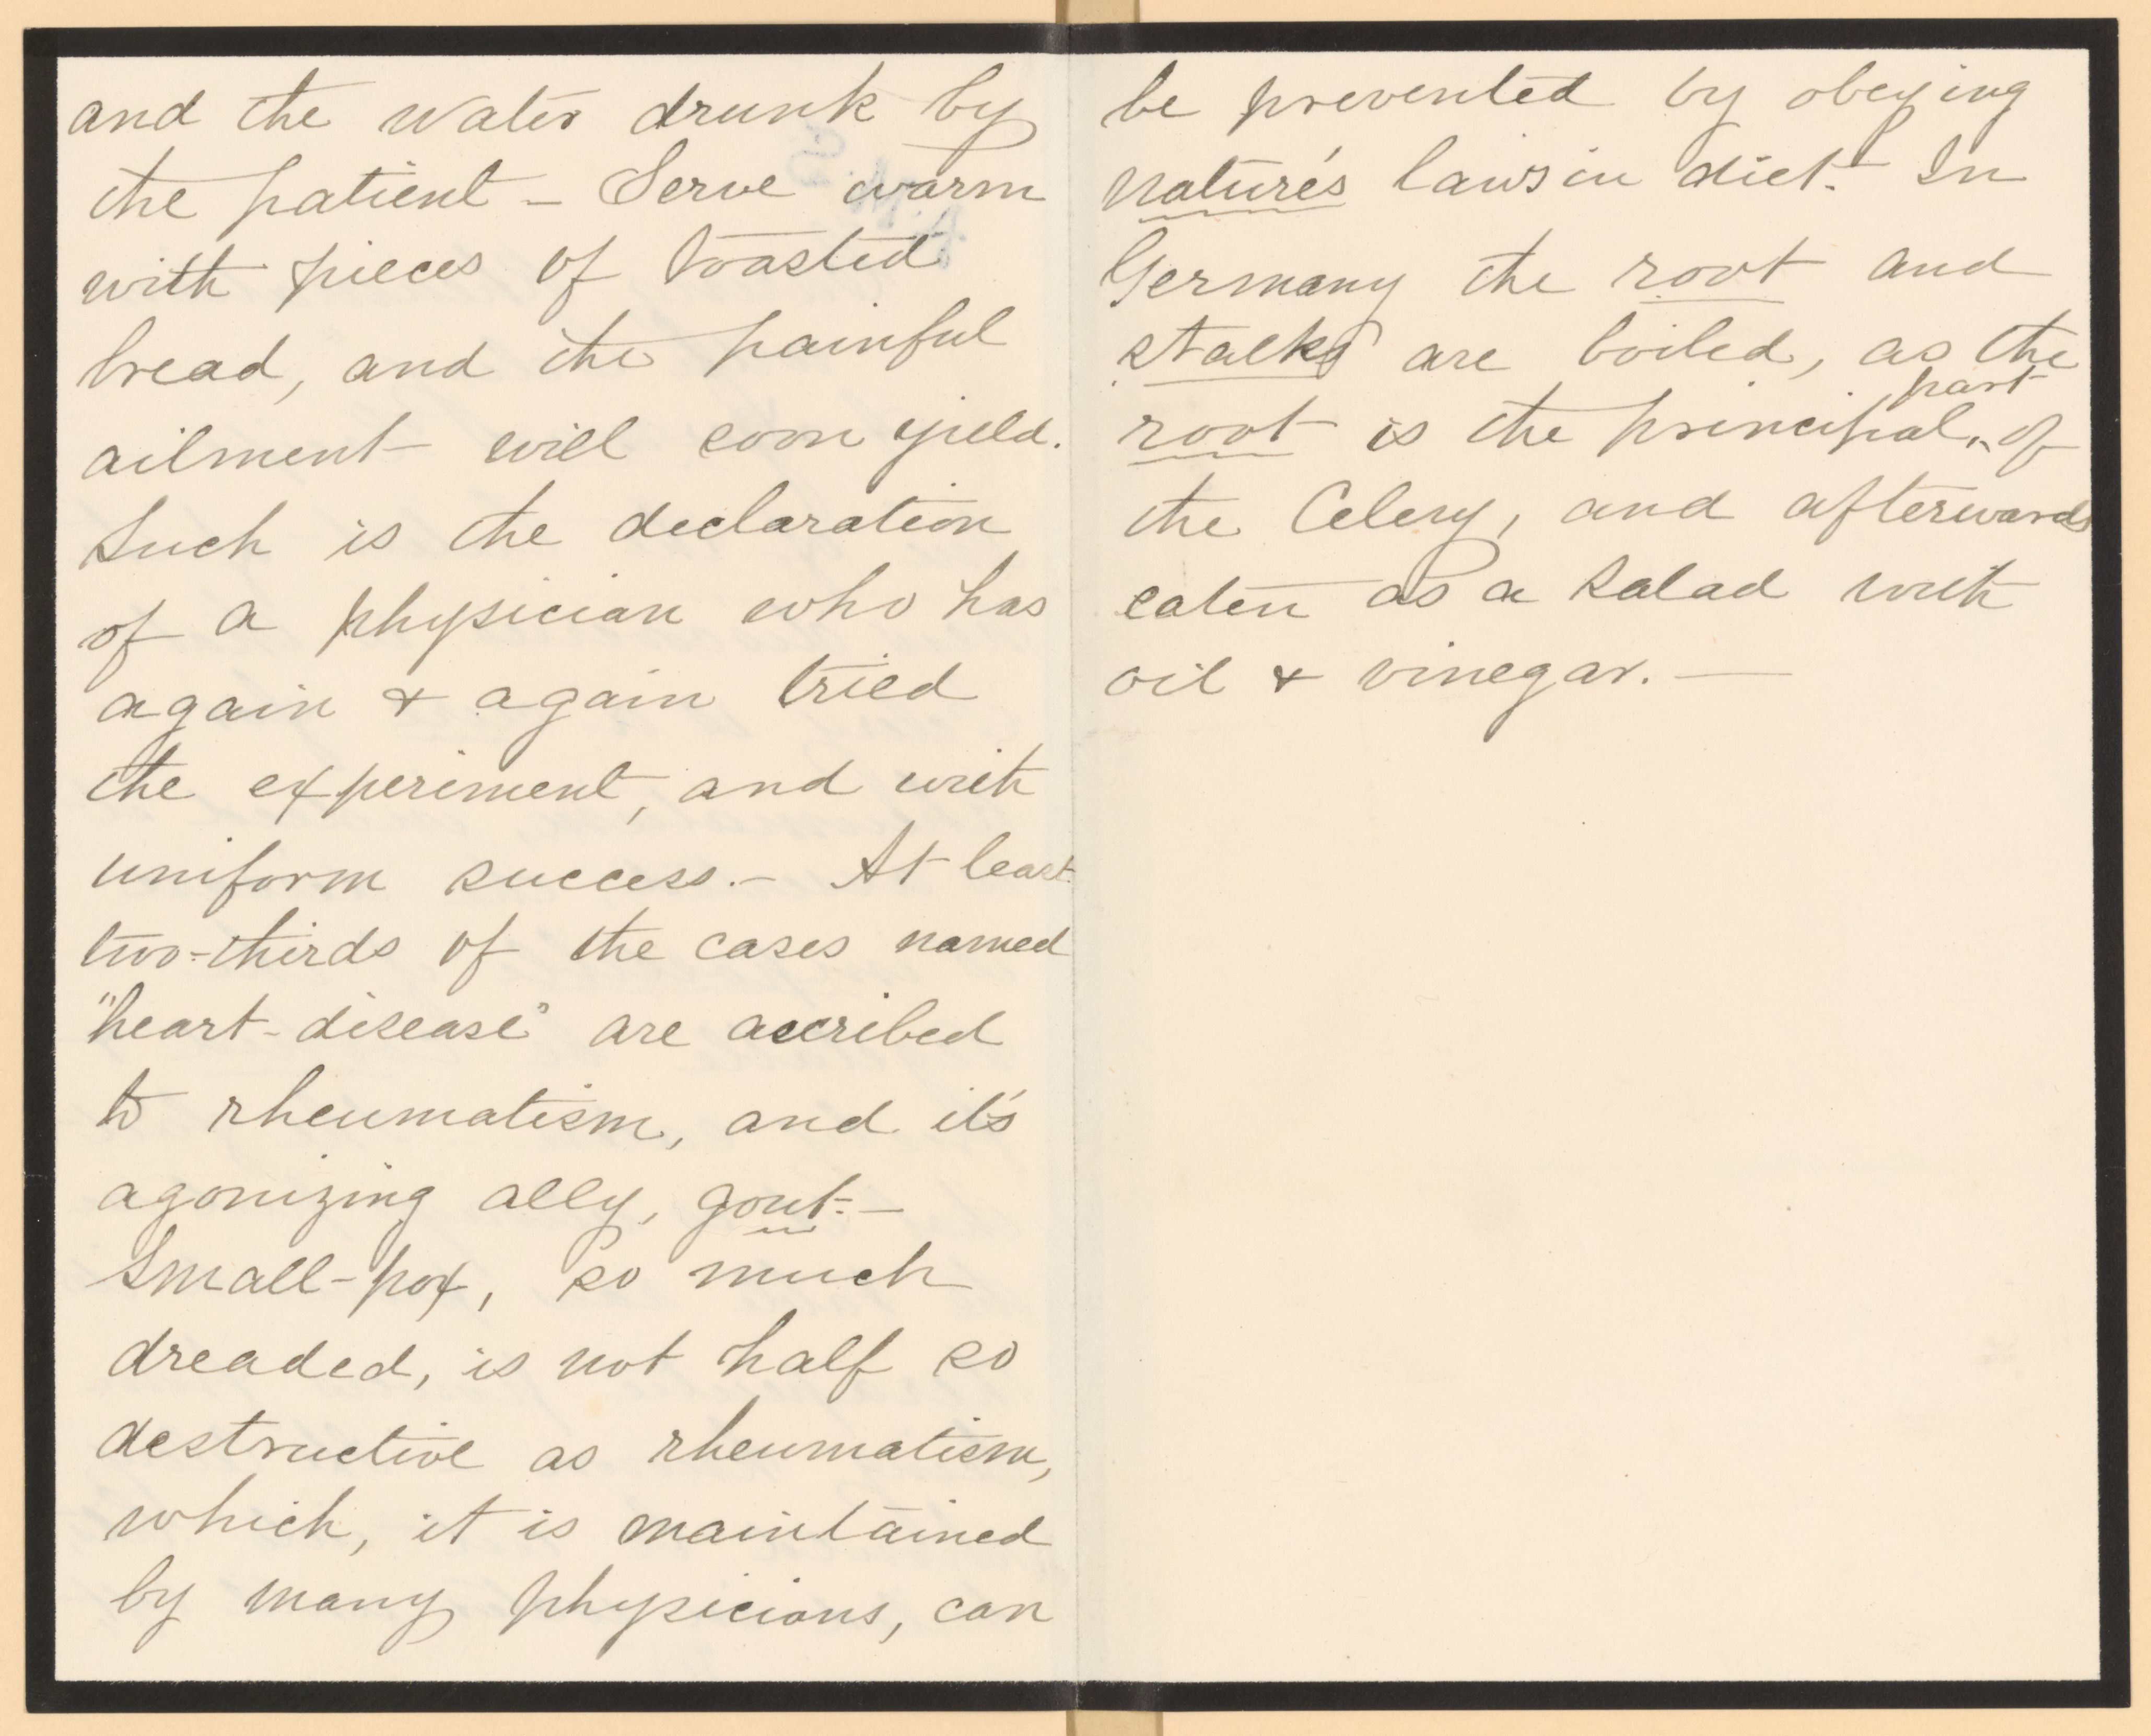 and the water drunk by
the patient - Serve warm
with pieces of toasted
bread, and the painful
ailment will soon yield.
Such is the declaration
of a physician who has
again & again tried
the experiment, and with
uniform success. - At least
two-thirds of the cases named
"heart-disease" are ascribed
to rheumatism, and it's
agonizing ally, gout. -
Small-pox, so much
dreaded, is not half so
destructive as rheumatism,
which, it is maintained
by many physicians, can
be prevented by obeying
nature's laws in diet. In
Germany the root and
stalks are boiled, as the
root is the principal part of
the Celery, and afterwards
eaten as a salad with
oil & vinegar. -